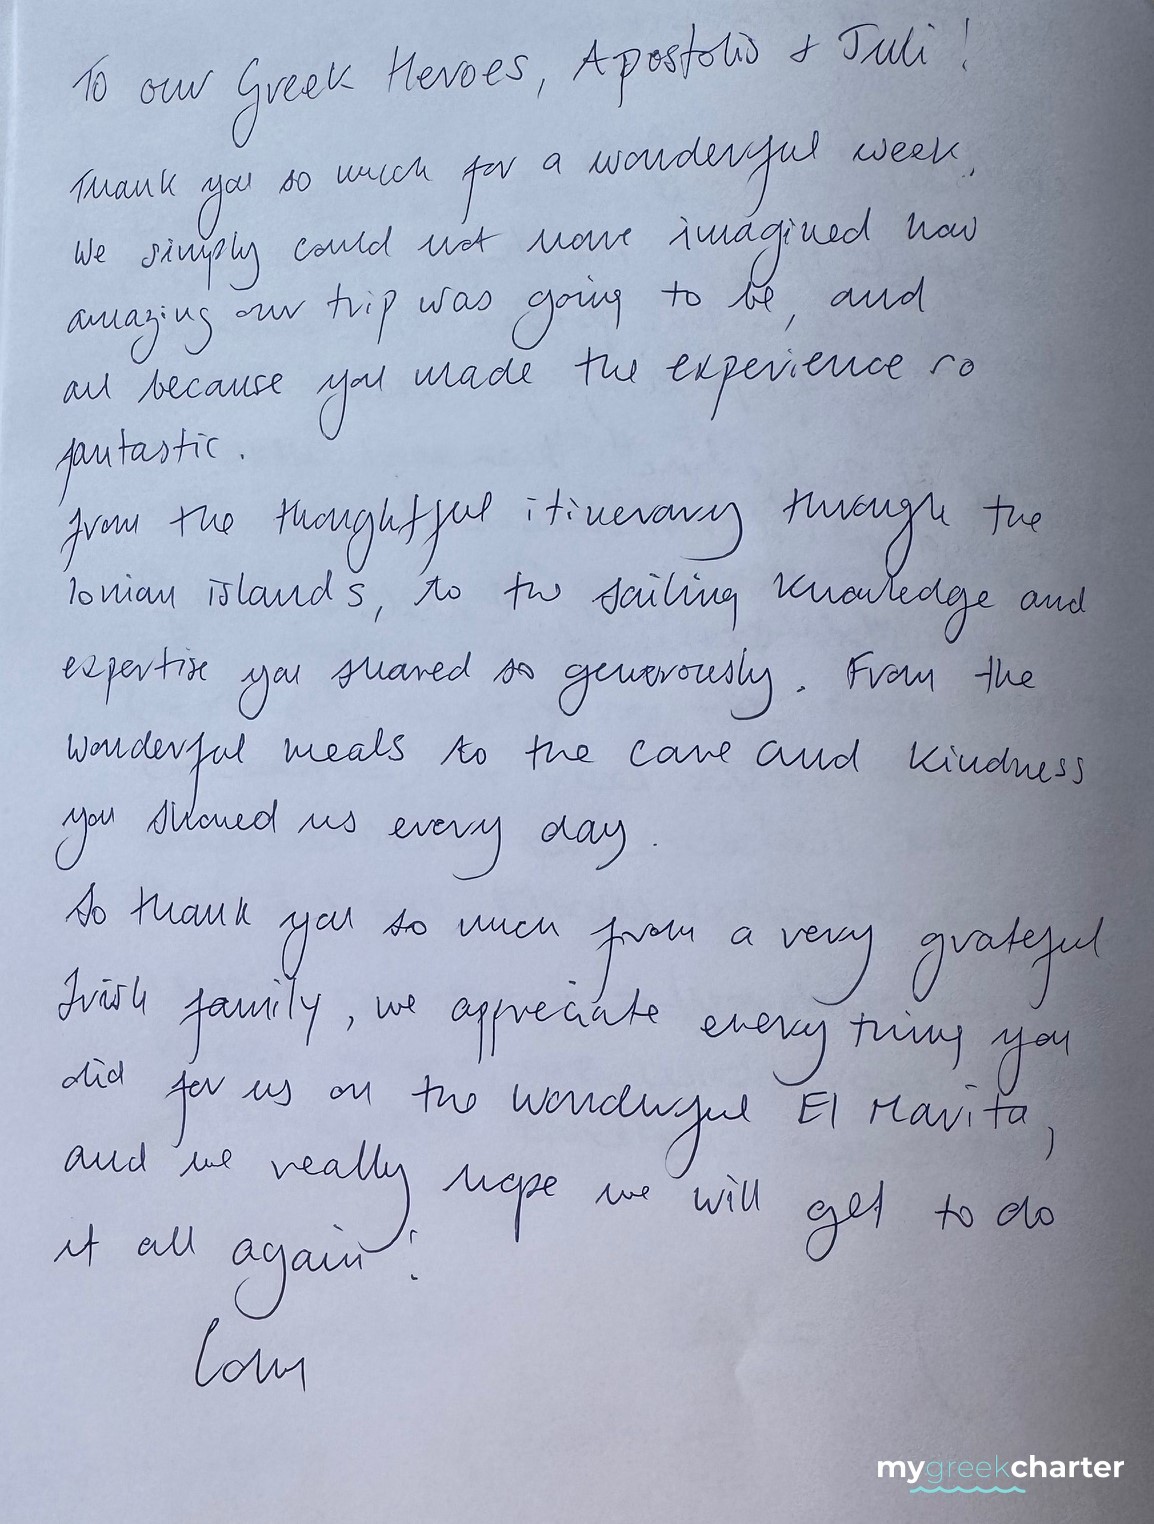 To our Greek Heroes, Apostolis & Juli!
Thank you so much for a wonderful week.
We simply could not have imagined how
amazing our trip was going to be, and
all because you made the experience so
fantastic.
From the thoughtful itinerary through the
Ionian islands, to the sailing knowledge and
expertise you shared so generously. From the
wonderful meals to the care and kindness
you showed us every day.
So thank you so much from a very grateful
Irish family, we appreciate everything you
did for us on the wonderful El Marita,
and we really hope we will get to do
it all again!
mygreekcharter